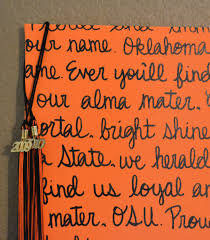 our name. Oklahoma
ame. Ever you'll find
our alma mater,
ortal, bright shine
a State, we herald
find us loyal an
mater, O.S.U. Prou